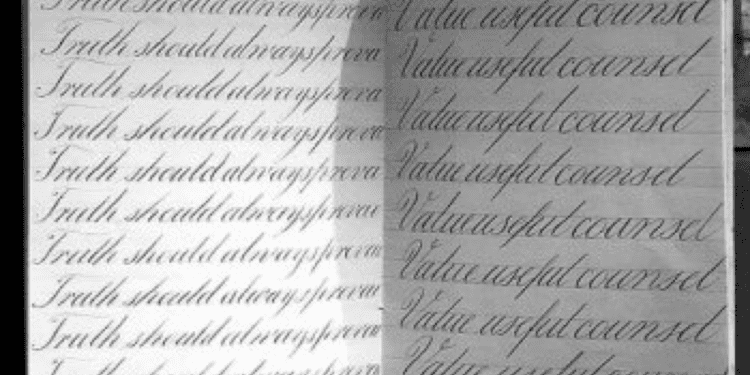 Truth should always preva
Truth should always preva
Truth should always preva
Truth should always preva
Truth should always preva
Truth should always preva
Truth should always preva
Truth should always preva
Truth should always preva
Truth should always preva
Value useful counsel
Value useful counsel
Value useful counsel
Value useful counsel
Value useful counsel
Value useful counsel
Value useful counsel
Value useful counsel